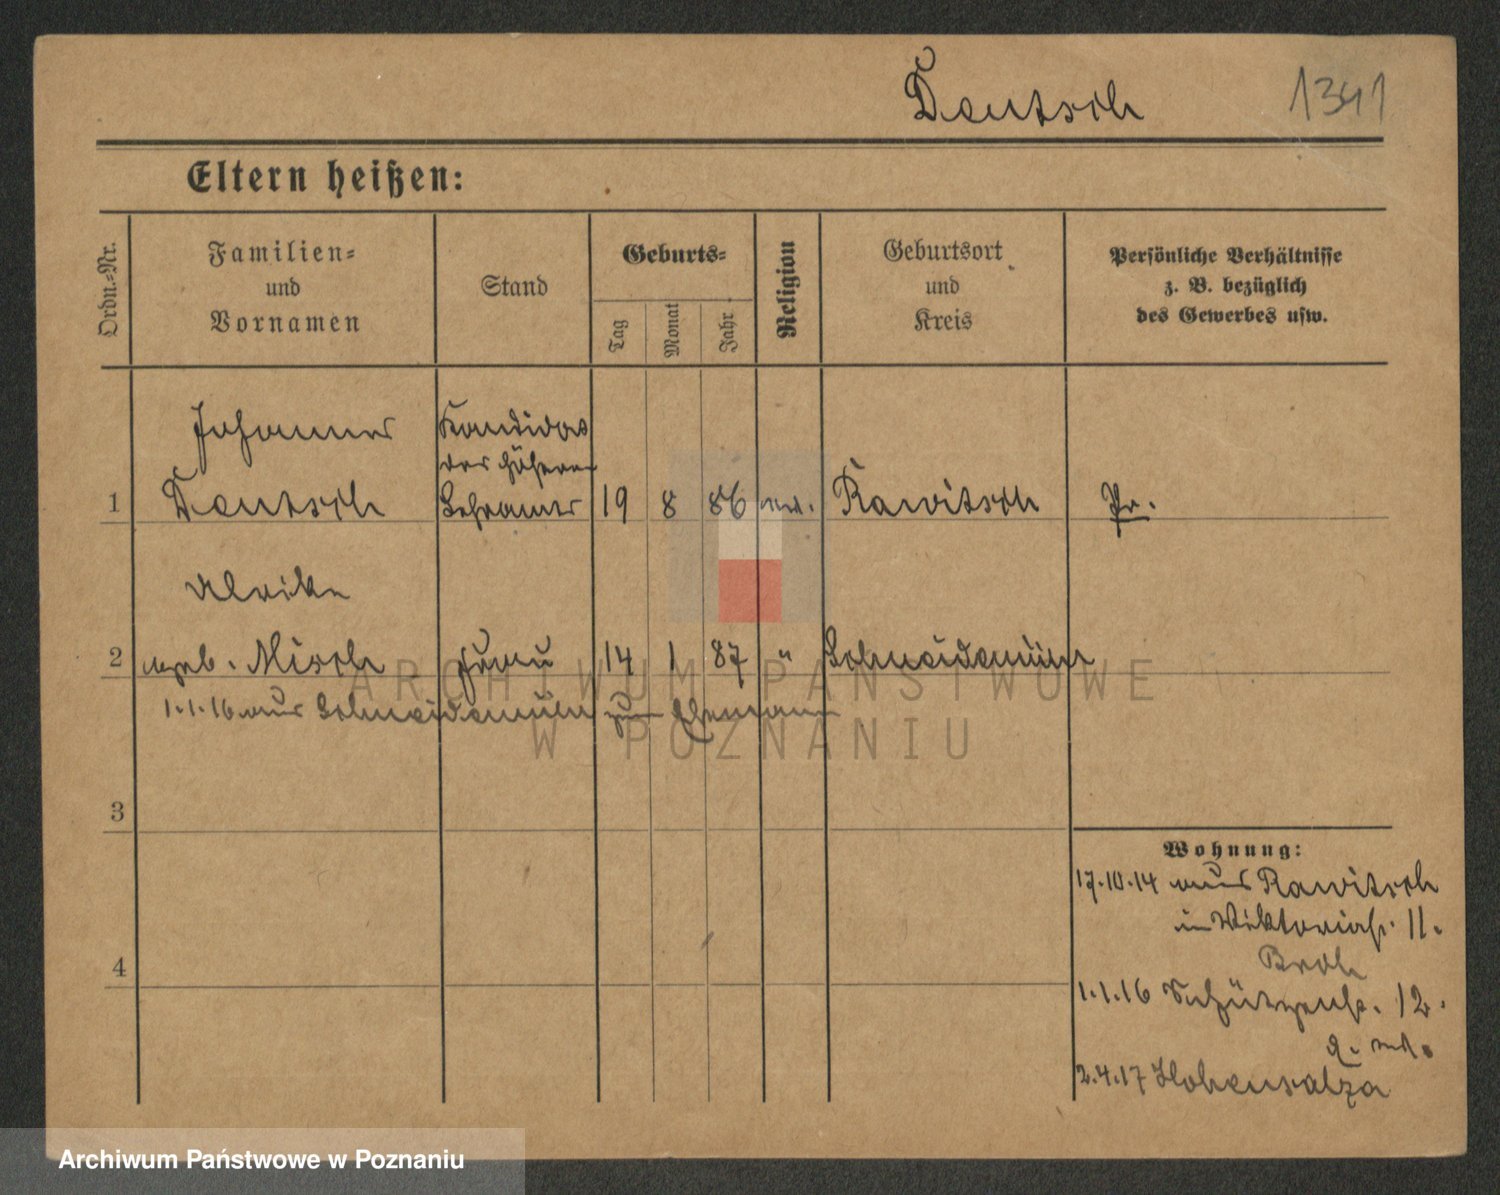 Deutsch 1341
Eltern heißen:
Ordn.-Nr.
Familien=
und
Vornamen
Stand
Geburts=
Tag
Monat
Jahr
Religion
Geburtsort
und
Kreis
Persönliche Verhältnisse
z. B. bezüglich
des Gewerbes usw.
Johannes Kandidat
des höheren
1 Deutsch Lehramts 19 8 86 ev. Rawitsch Pr.
Ulrike
2 geb. Mirsch Frau 14 1 87 " Schneidemühl
1.1.16 aus Schneidemühl zum Ehemann
3
4
Wohnung:
17.10.14 aus Rawitsch
in Viktoriastr. 11.
1.1.16 Schützenstr. 12.
2.4.17 Hohensalza
ARCHIWUM PAŃSTWOWE
W POZNANIU
Archiwum Państwowe w Poznaniu